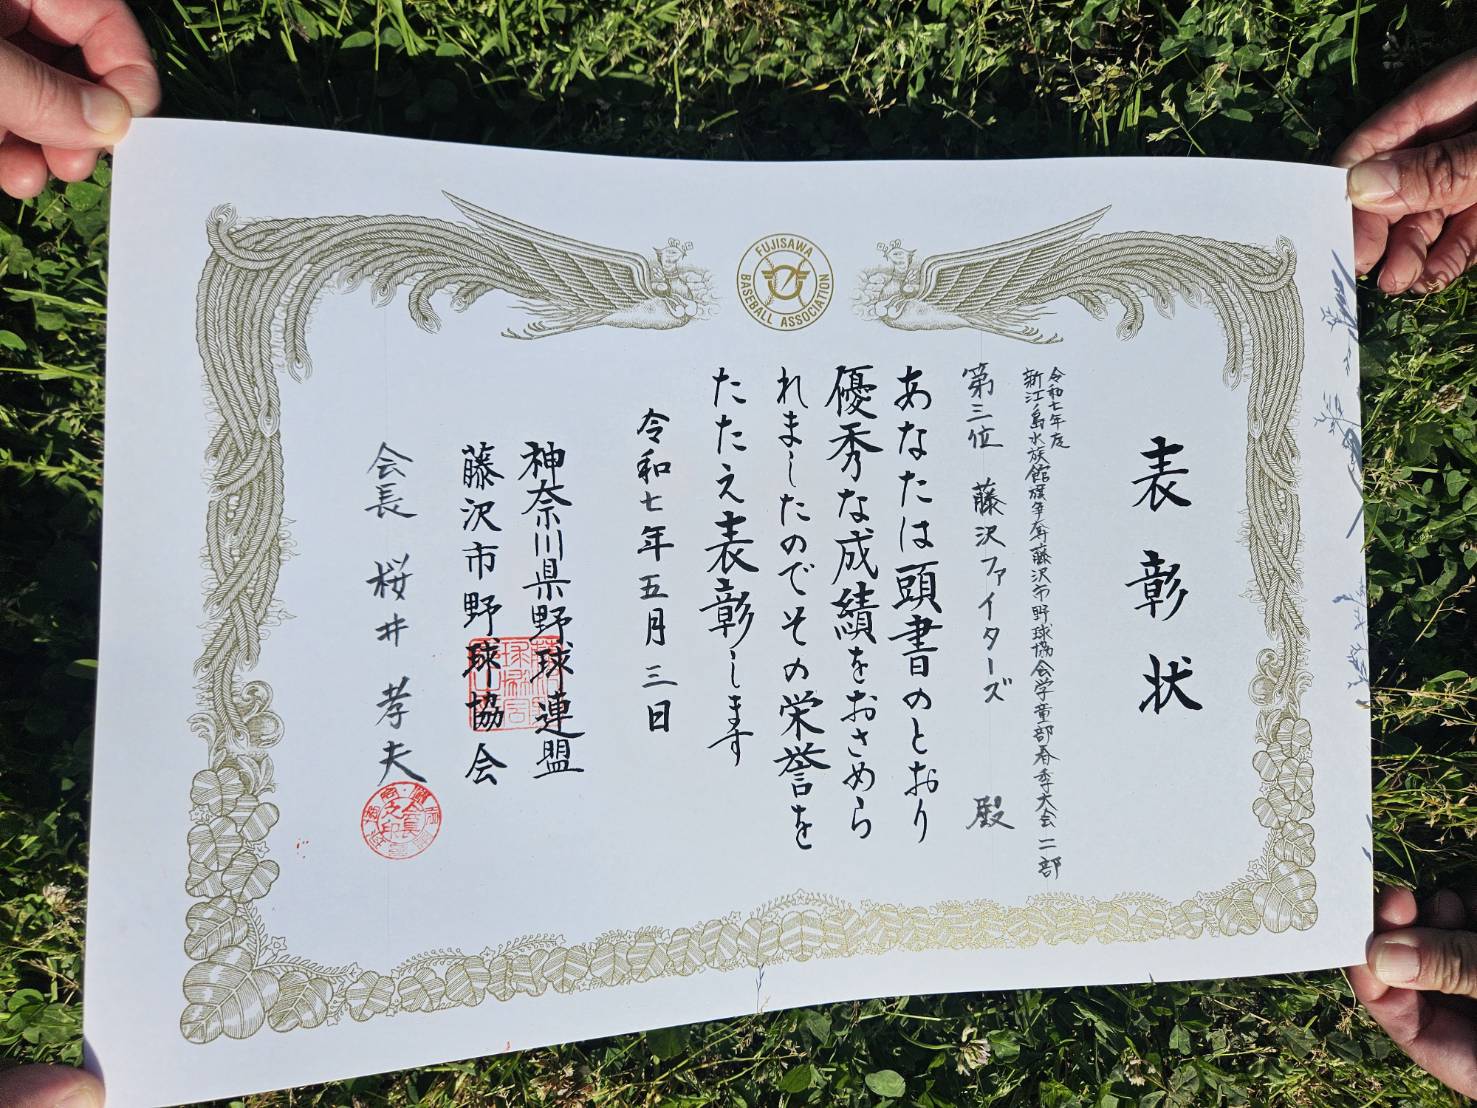 FUJISAWA BASEBALL ASSOCIATION
表彰状
令和七年度
新江ノ島水族館旗争奪藤沢市野球協会学童部春季大会二部
第三位 藤沢ファイターズ 殿
あなたは頭書のとおり
優秀な成績をおさめら
れましたのでその栄誉を
たたえ表彰します
令和七年五月三日
神奈川県野球連盟
藤沢市野球協会
会長 桜井孝夫